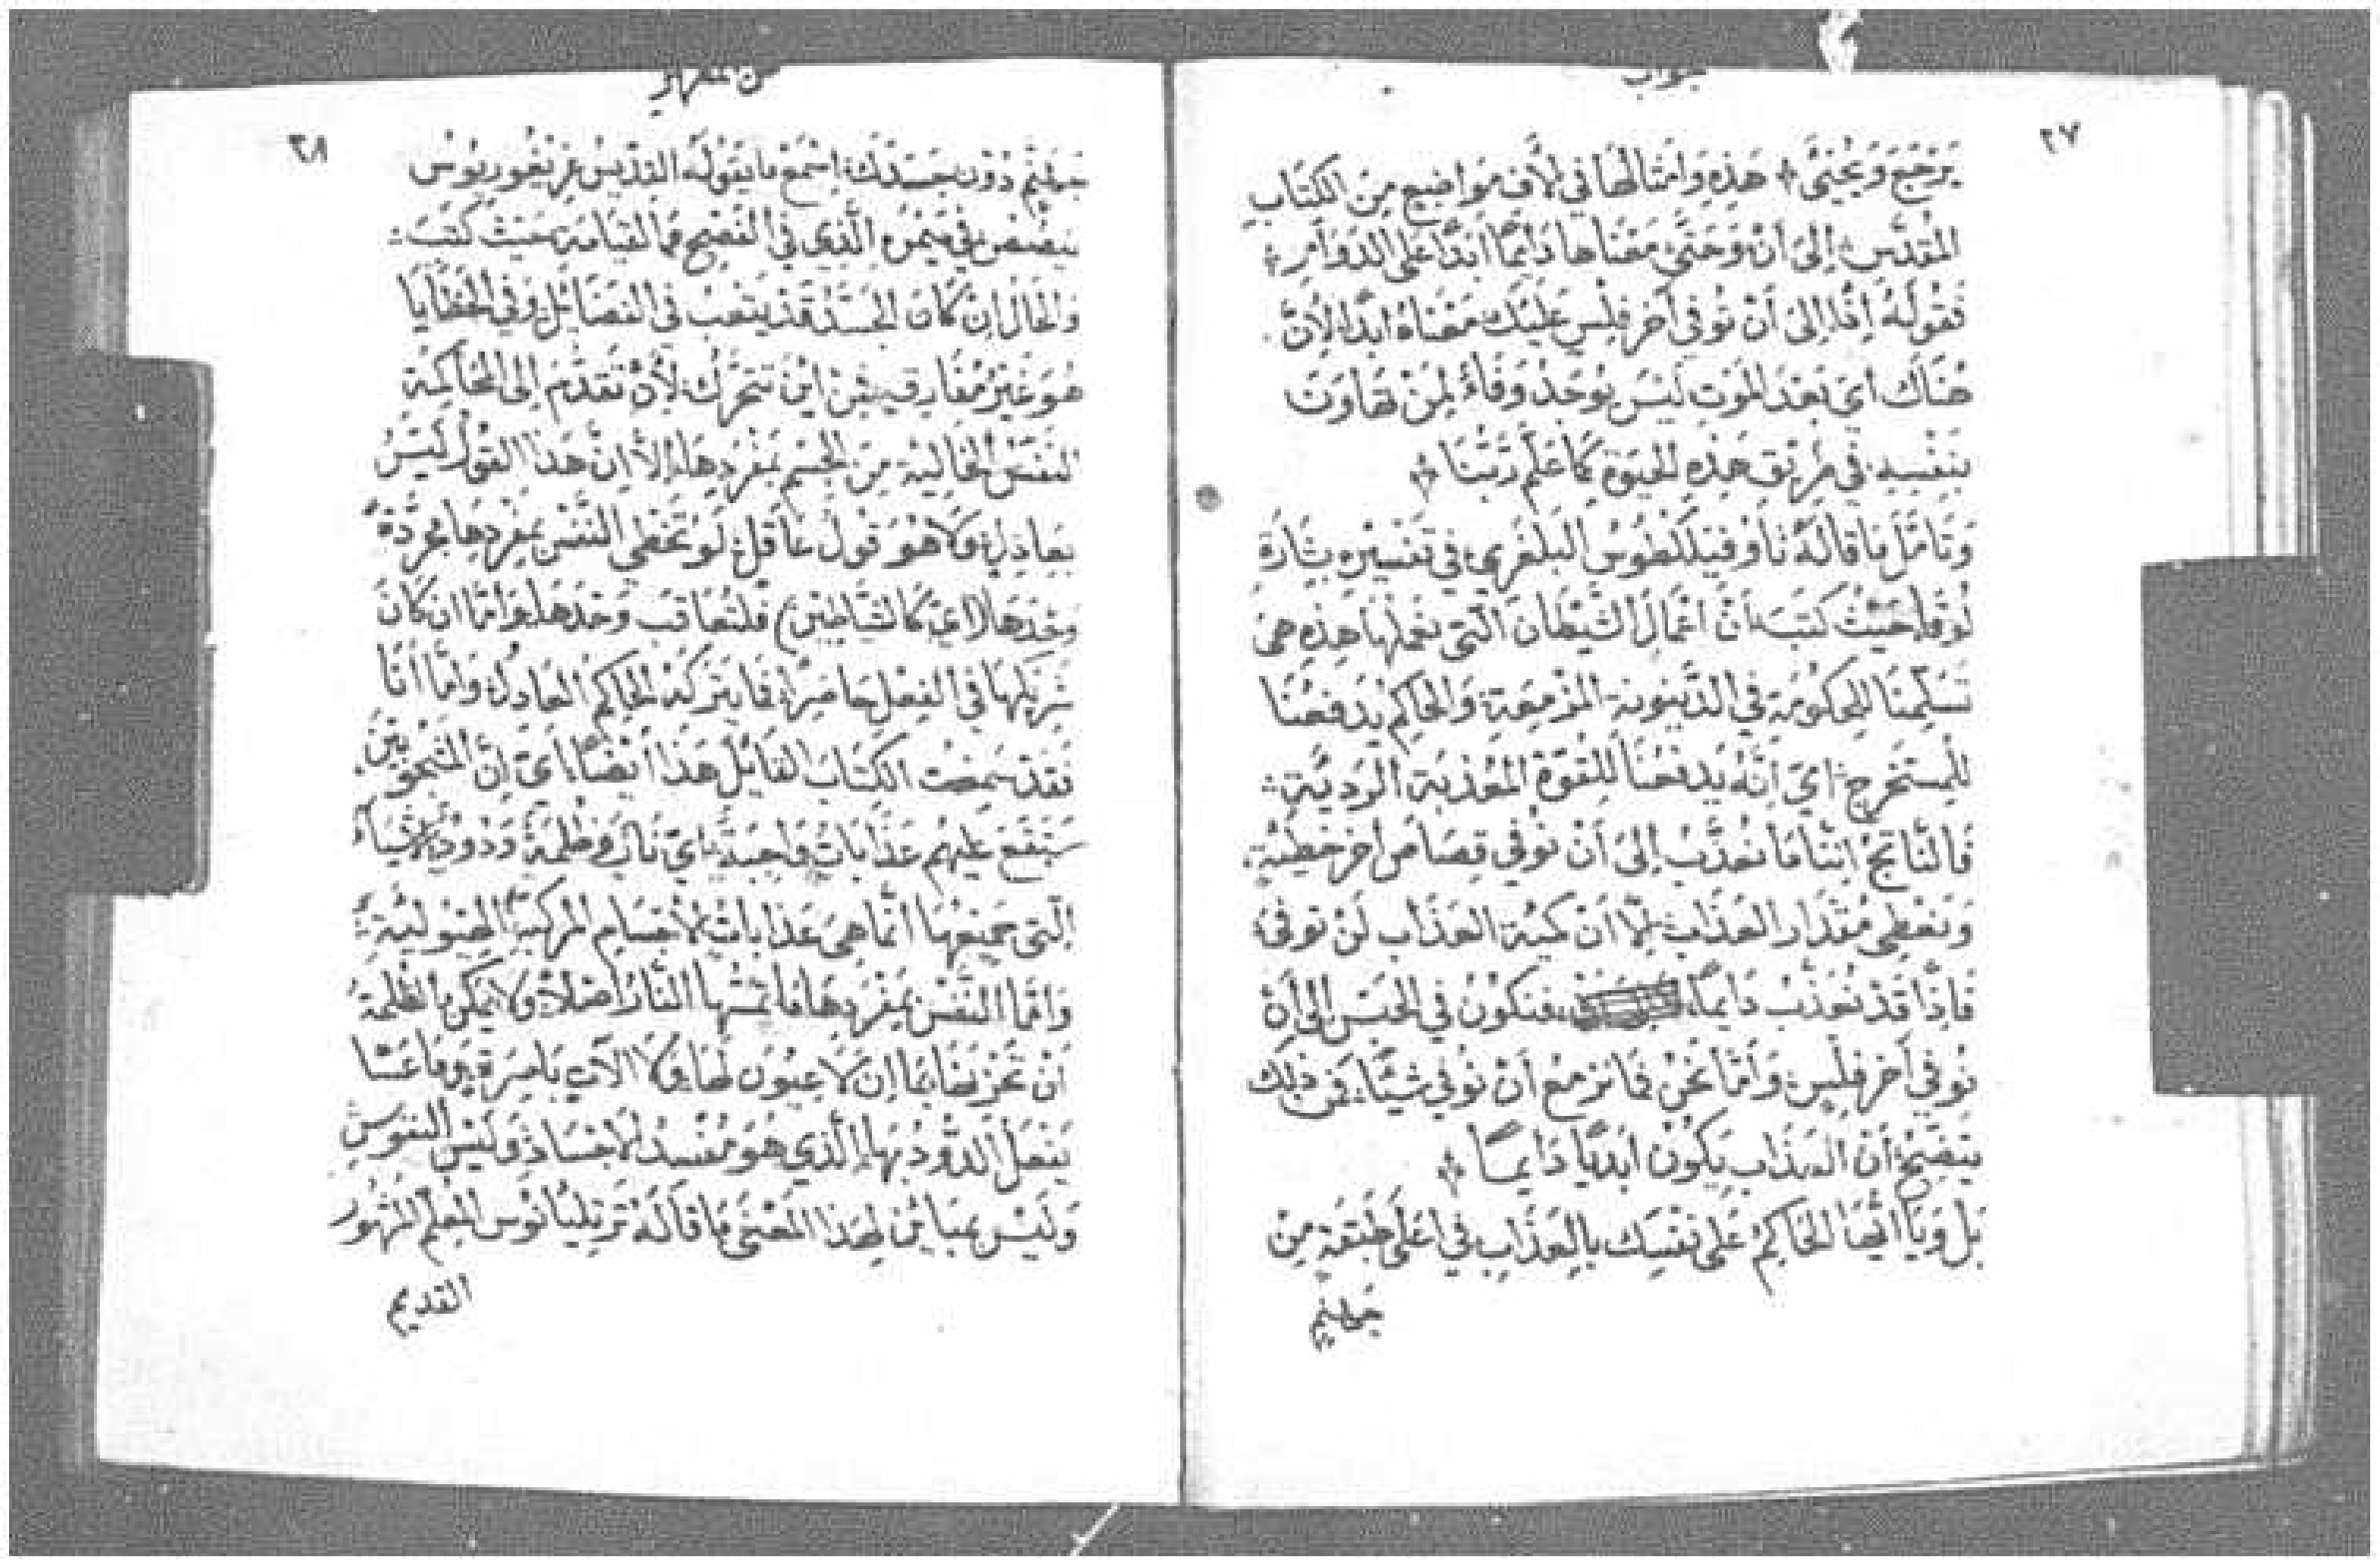 جواب
٢٧
يَرْجَعَ وَيُجْنَى ۞ هَذِهِ وَامْثَالُهَا في الآف مَوَاضِيع مِنَ الكِتَابِ
المُقَدَّسِ: إلىَ أنْ وَحَتَّى مَعْنَاها دَايمًا أبَدًا عَلى الدَوَامِ؞
فَقَولَهُ إذًا إلىَ أنْ تُوفي آخر فِلْسٍ عَلَيْك مَعْنَاهُ ابَدًا، لِأنَّ
هُنَاك أيْ بَعْدَ المَوتِ لَيْسَ يُوجَدُ وَفَاءُ لِمَنْ تَهَاوَنَ
بِنَفْسِهِ في طَرِيْقِ هَذِهِ الحَيَوةِ كَمَا عَلَّمَ رَبُّنَا ۞
وَتَأمَّلَ مَا قالَهُ ثاوُفيلكْطوُسُ البَلْغَري، في تَفْسِيْرِهِ بِشَارَةِ
لُوقا حَيْثُ كَتَبَ، أنَّ اعْمَالَ الشَيْطَانَ الَّتي نعمَلها هذِهِ هيَ
تُسَلِّمُنَا لِلحكُومَةِ في الدَّيْنُونَةِ المُزْمِعَةِ، وَالحَاكِمُ يَدْفَعُنَا
لِلْمِسْتَخْرِجِ، ايْ أنَّهُ يَدْفَعُنَا لِلقُوَّةِ المُعَذِّبَةِ الرَديَّةِ؞
فَالنَّاتِجُ إنَّنَا مَا نُعَذَّبُ إلىَ أنْ نُوفي قِصَاصَ آخر خَطِيَّةٍ،
وَنُعْطِي مُقْدَارَ العَذَابِ، لِمَّا أنّ كَميَّةَ العَذَابِ لَنْ تُوفى،
فَإذًا قَدْ نُعَذَّبُ دَايمًا، فنَكُونُ في الحَبْسِ إلىَ أنْ
نُوفي آخرَ فِلْسٍ، وَأمَّا نَحْنُ فَمَا نزمع أنْ نُوفي شَيْئًا، فَمِن ذَلِك
يَتَّضِحُ أنّ العَذَابَ يَكُونُ أبَديًّا دَايمًا ۞
بَلْ وَيَا ايُّهَا الحَاكِمُ عَلى نَفْسِك بِالعَذَابِ في اعْلَى طَبَقَةٍ مِنْ
جهنم
٢٨
جَهَنَّم دُوْنَ جَسَدَك، إسْمَعْ مَا يَقُولهُ القِدِّيس غِرِيْغُورِيُوسُ
في مَيْمَرِهِ الَّذِي في الفَصْحِ وَالقيَامَةِ، حَيْثُ كَتَبَ؞
وَالحَالْ إنْ كَانَ الجَسَدُ قَدْ يَتعَبُ في الفَضَائِلِ، وَفي الخَطَايَا
هُوَ غَيْرُ مُفَارِقٍ، فَمِنْ ايْنَ تَتَحَرَّك، لأنْ تُقَدِّمَ إلى المُحَاكَمَة
النَفْسُ الخَالِيَة مِنَ الجِسْمِ بمُفْرَدِهَا، إلاَّ إنَّ هَذَا القَوْلُ لَيْسَ
بِعَادِلٍ، وَلاَ هُوَ قَوْلُ عَاقِلٍ، لَو تُخْطِي النَفْسُ بمُفْرَدِهَا مُجَرَّدَةً
وَحْدَهَا (ايْ كَالشَيَاطِينِ) فَلتُعَاقَب وَحْدَهَا، وَامَّا ان كَانَ
شَرِيْكُهَا في الفِعْلِ حَاضِرًا، فَمَا يَتْرُكهُ الحَاكِمُ العَادِلُ، وَامَّا أنَا
فَقَدْ سَمِعْت الكِتَابَ القَايلَ هَذَا أيْضًا، أيْ إنَّ
سَتَقَعُ عَلَيْهِم عَذَابَاتٌ وَاجِبَةٌ، أيْ نَارٌ وَظُلْمَةٌ وَدُوْدٌ،
الَّتي جَميعُهَا انَّمَا هيَ عَذَابَاتُ الأجْسَامِ المُركَّبَةِ الهَيُولِيَّةِ؞
وَامَّا النَّفْسُ بمُفْرَدِهَا فمَا تَمَسُّهَا النَّارُ اصْلاً، وَلا يمكن بالظلمة
أنْ تحْزِنَهَا، بمَا إنّ لا عِيُونَ لهَا، وَلاَ الآتِ بَاصِرَةٍ، وَمَا عَسَا
يَفْعَلُ الدُّوْدُ بِهَا، الَّذِي هُوَ مُفْسِدُ الأجْسَادِ وَلَيْسَ النفوس
وَلَيْسَ بمُبَايِنٍ لهَذَا المَعْنى مَا قالَهُ تَرتيلِيَانُوس المُعَلِّم المَشْهُور
القديم